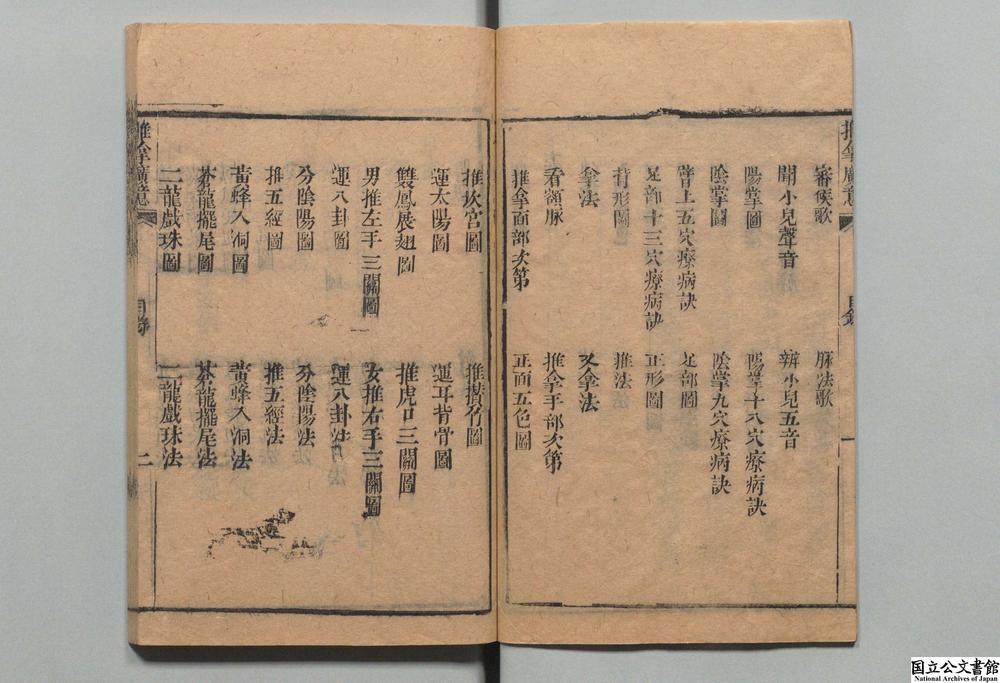 推拿廣意 目錄 一
審候歌 脉法歌
聞小兒聲音 辨小兒五音
陽掌圖 陽掌十八穴療病訣
陰掌圖 陰掌九穴療病訣
臂上五穴療病訣 足部圖
足部十三穴療病訣 正形圖
背形圖 推法
拿法 又拿法
看額脉 推拿手部次第
推拿面部次第 正面五色圖
推坎宮圖 推攢竹圖
運太陽圖 運耳背骨圖
雙鳳展翅圖 推虎口三關圖
男推左手三關圖 女推右手三關圖
運八卦圖 運八卦法
分陰陽圖 分陰陽法
推五經圖 推五經法
黃蜂入洞圖 黃蜂入洞法
蒼龍擺尾圖 蒼龍擺尾法
二龍戲珠圖 二龍戲珠法
推拿廣意 目錄 二
国立公文書館
National Archives of Japan